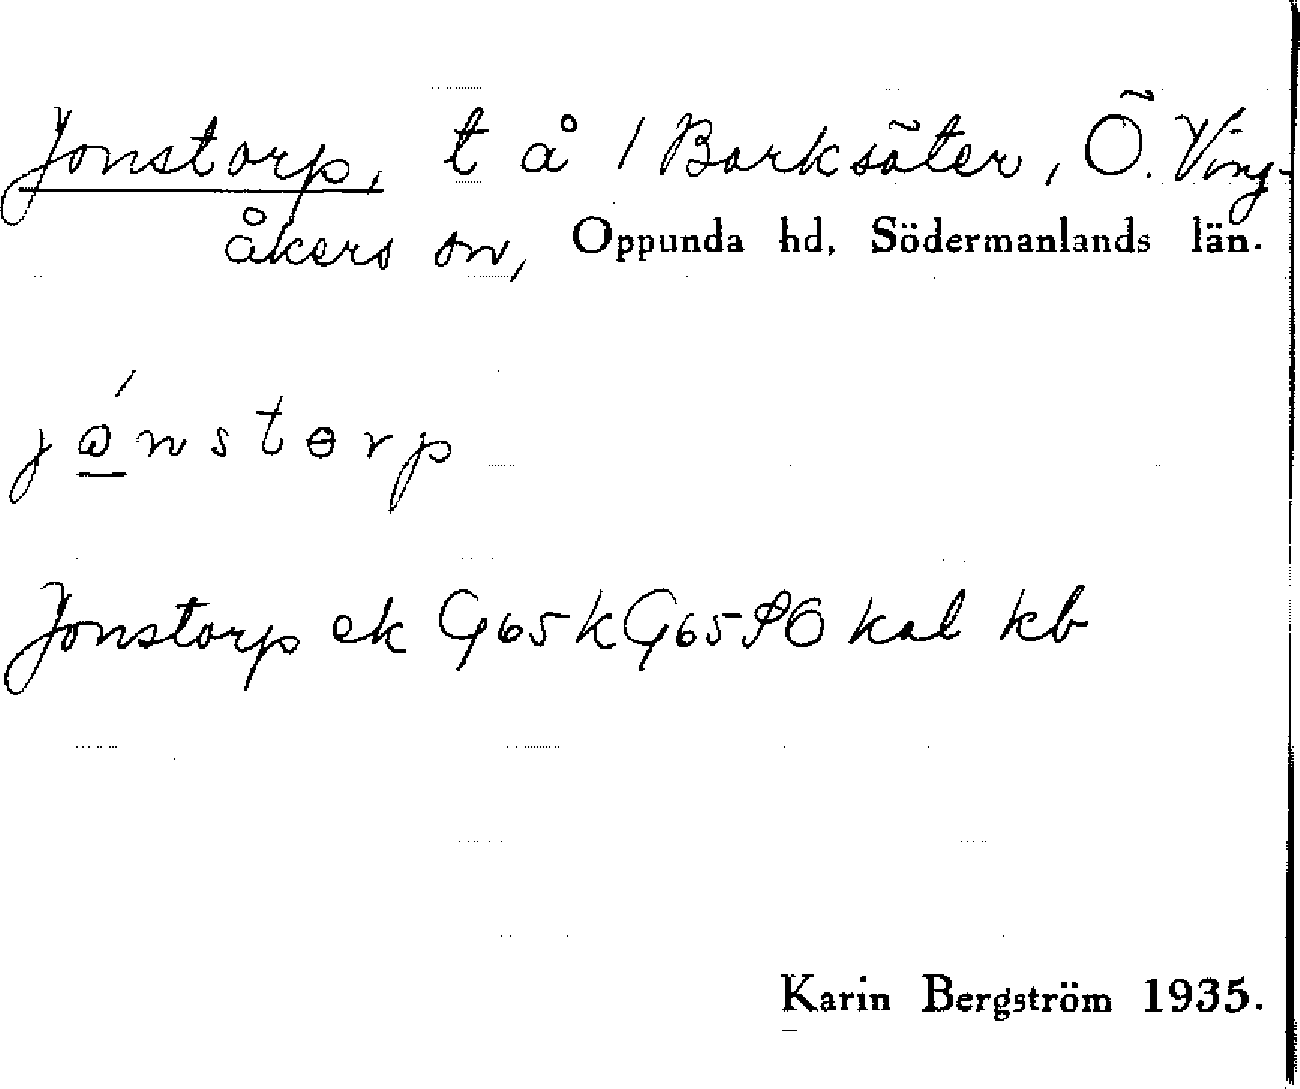 Jonstorp, t å / Barksäter, Ö. Ving-
åkers sn, Oppunda hd, Södermanlands län.
jɷ́nstɵrp
Jonstorp ek G65k G65 PO kal kb
Karin Bergström 1935.